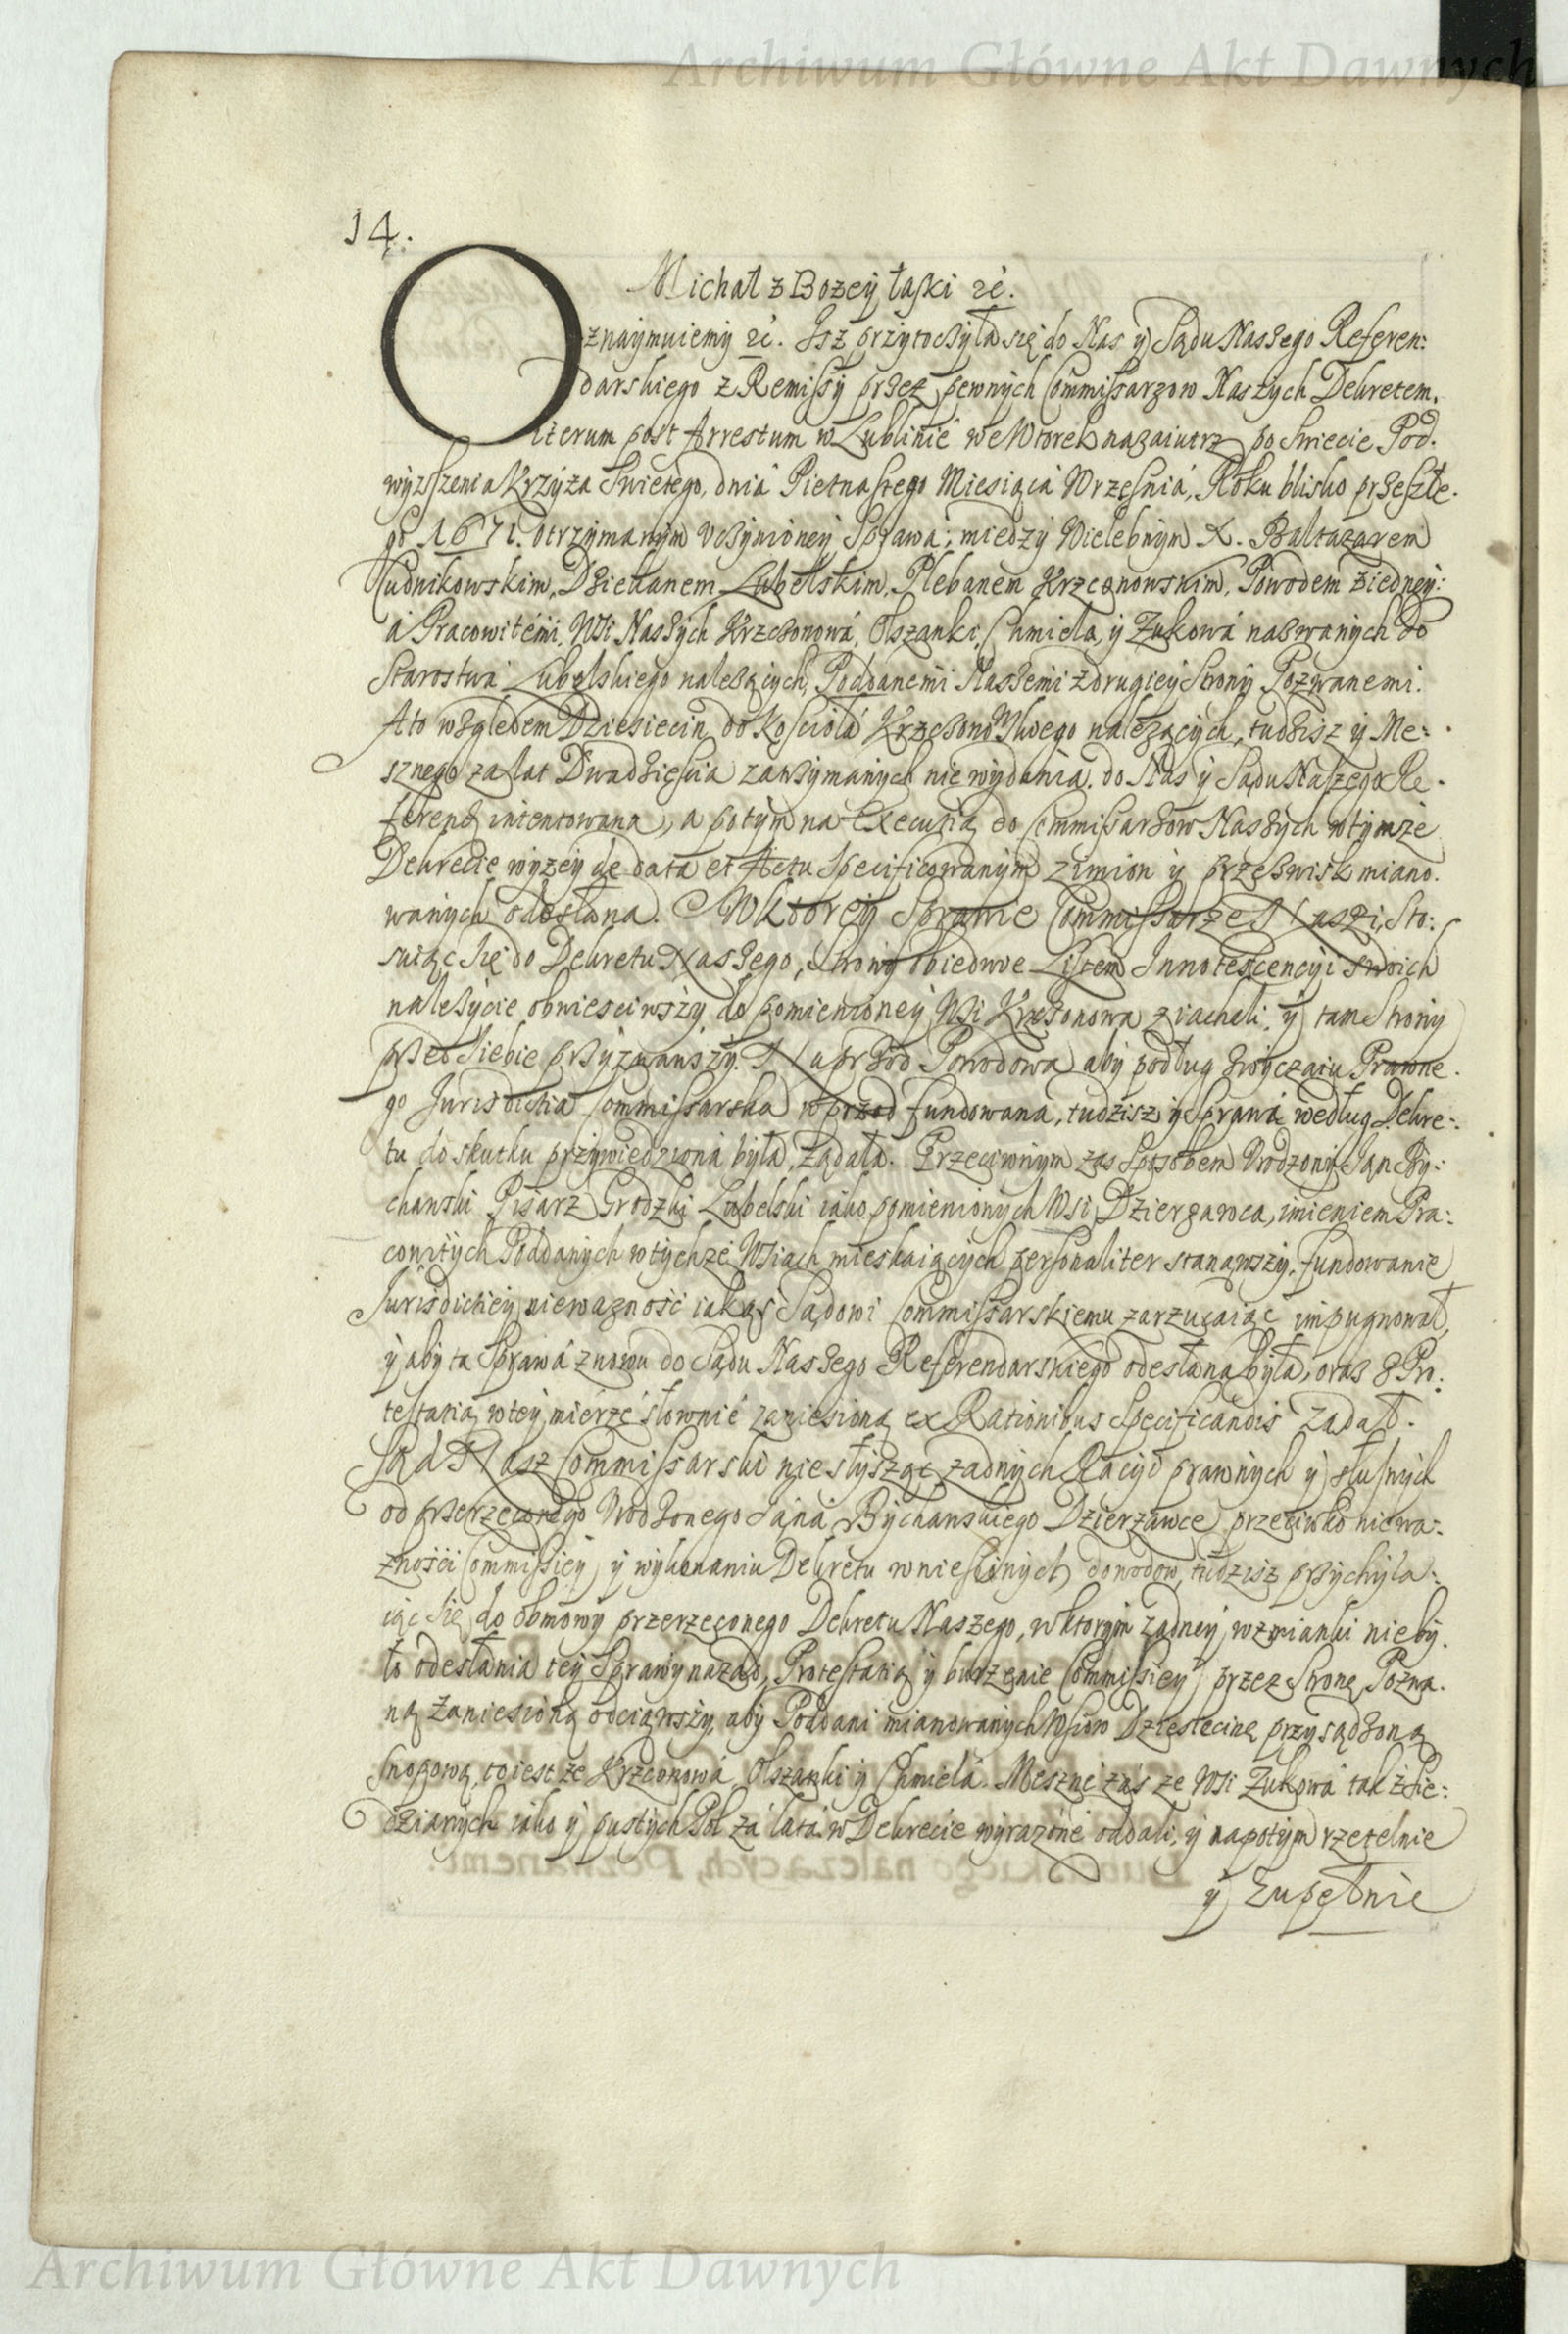 Archiwum Główne Akt Dawnych
14.
Michał z Bozey łaski &c.
Oznaymuiemy &c. Isz przytoczyła się do Nas y Sądu Naszego Referen:
darskiego z Remissy przez pewnych Commissarzow Naszych Dekretem.
iterum post Arrestum w Lublinie we Wtorek nazaiutrz po Swiecie Pod.
wyzszenia Krzyża Swietego, dnia Pietnastego Miesiąca Wrzesnia, Roku blisko przeszłe.
go 1671. otrzymanym uczynioney Sprawa; między Wielebnym X. Baltazarem
Cudnikowskim, Dziekanem Lubelskim, Plebanem Krzczonowskim, Powodem ziedney:
á Pracowitemi, Wsi Naszych Krzczonowá, Olszanki, Chmiela, y Zukowá nazwanych do
Starostwa Lubelskiego nalezących, Poddanemi Naszemi z drugiey Strony Pozwanemi.
A to względem Dziesiecin do Kościoła Krzczonowskiego należących, tudzisz y Me:
sznego za lat Dwadzieścia zatrzymanych nie wydania. do Nas y Sądu Naszego Re.
ferend intentowana, a potym na Execucią do Commissarzow Naszych w tymze
Dekrecie wyzey de data et Actu Specificowanym z imion y przezwisk miano.
wanych odesłana. W ktorey Sprawie Commissarze Naszi, Sto:
suiąc Się do Dekretu Naszego, Strony obiedwie Listem Innotescencyi swoich
należycie obwiesciwszy do pomienioney Wsi Krzczonowa ziachali, y tam Strony
przed Siebie przyzwawszy. Naprzod Powodowa aby podług zwyczaiu Prawne.
go Jurisdictia Commissarska w przod fundowana, tudzisz y Sprawa według Dekre:
tu do skutku przywiedziona była, żądała. Przeciwnym zas Sposobem Urodzony Jan By:
chawski Pisarz Grodzki Lubelski iako pomienionych Wsi Dzierzawca, imieniem Pra:
cowitych Poddanych w tychze Wsiach mieskaiących personaliter stanąwszy, fundowanie
Jurisdictiey niewazność iakąś Sądowi Commissarskiemu zarzucaiąc impugnował,
y aby ta Sprawá znowu do Sądu Naszego Referendarskiego odesłana była, oraz y Pro:
testatią w tey mierze słownie zaniesioną ex Rationibus Specificandis Ządał.
Sąd Nasz Commissarski nie słysząc żadnych Racyi prawnych y słusznych
od przerzeconego Urodzonego Jana Bychawskiego Dzierzawce przeciwko niewa:
żności Commissiey y wykonaniu Dekretu wniesionych dowodow, tudzisz przychyla:
iąc Się do obmowy przerzeconego Dekretu Naszego, w ktorym żadney wzmianki nie by.
ło odesłania tey Sprawy nazad, Protestatią y burzenie Commissiey przez Stronę Pozwa.
ną Zaniesioną odciąwszy, aby Poddani mianowanych Wsiow Dziesiecinę przysądzoną
Snopową, to iest ze Krzczonowá, Olszanki y Chmiela. Meszne zas ze Wsi Zukowá tak zSie:
dzianych iako y pustych Pol za lata w Dekrecie wyrazone oddali, y napotym rzetelnie
y Zupełnie
Archiwum Główne Akt Dawnych